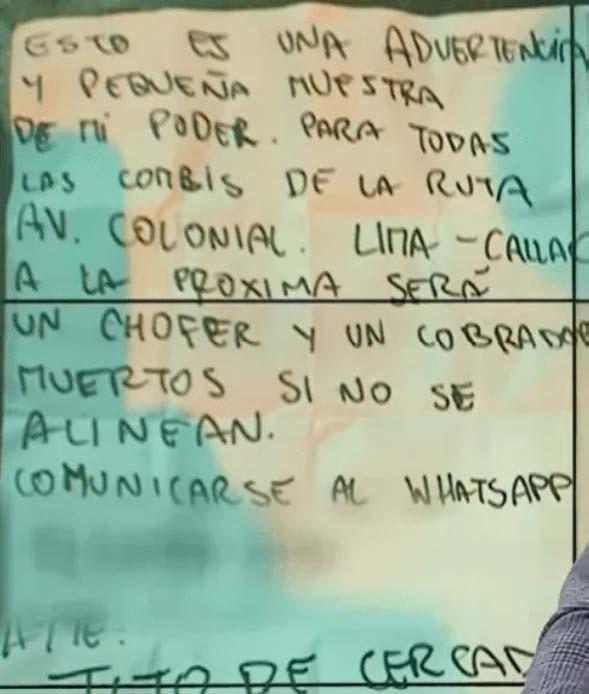 ESTO ES UNA ADVERTENCIA
Y PEQUEÑA MUESTRA
DE MI PODER. PARA TODAS
LAS COMBIS DE LA RUTA
AV. COLONIAL. LIMA - CALLAO
A LA PROXIMA SERÁ
UN CHOFER Y UN COBRADOR
MUERTOS SI NO SE
ALINEAN.
COMUNICARSE AL WHATSAPP
ATTE:
TITO DE